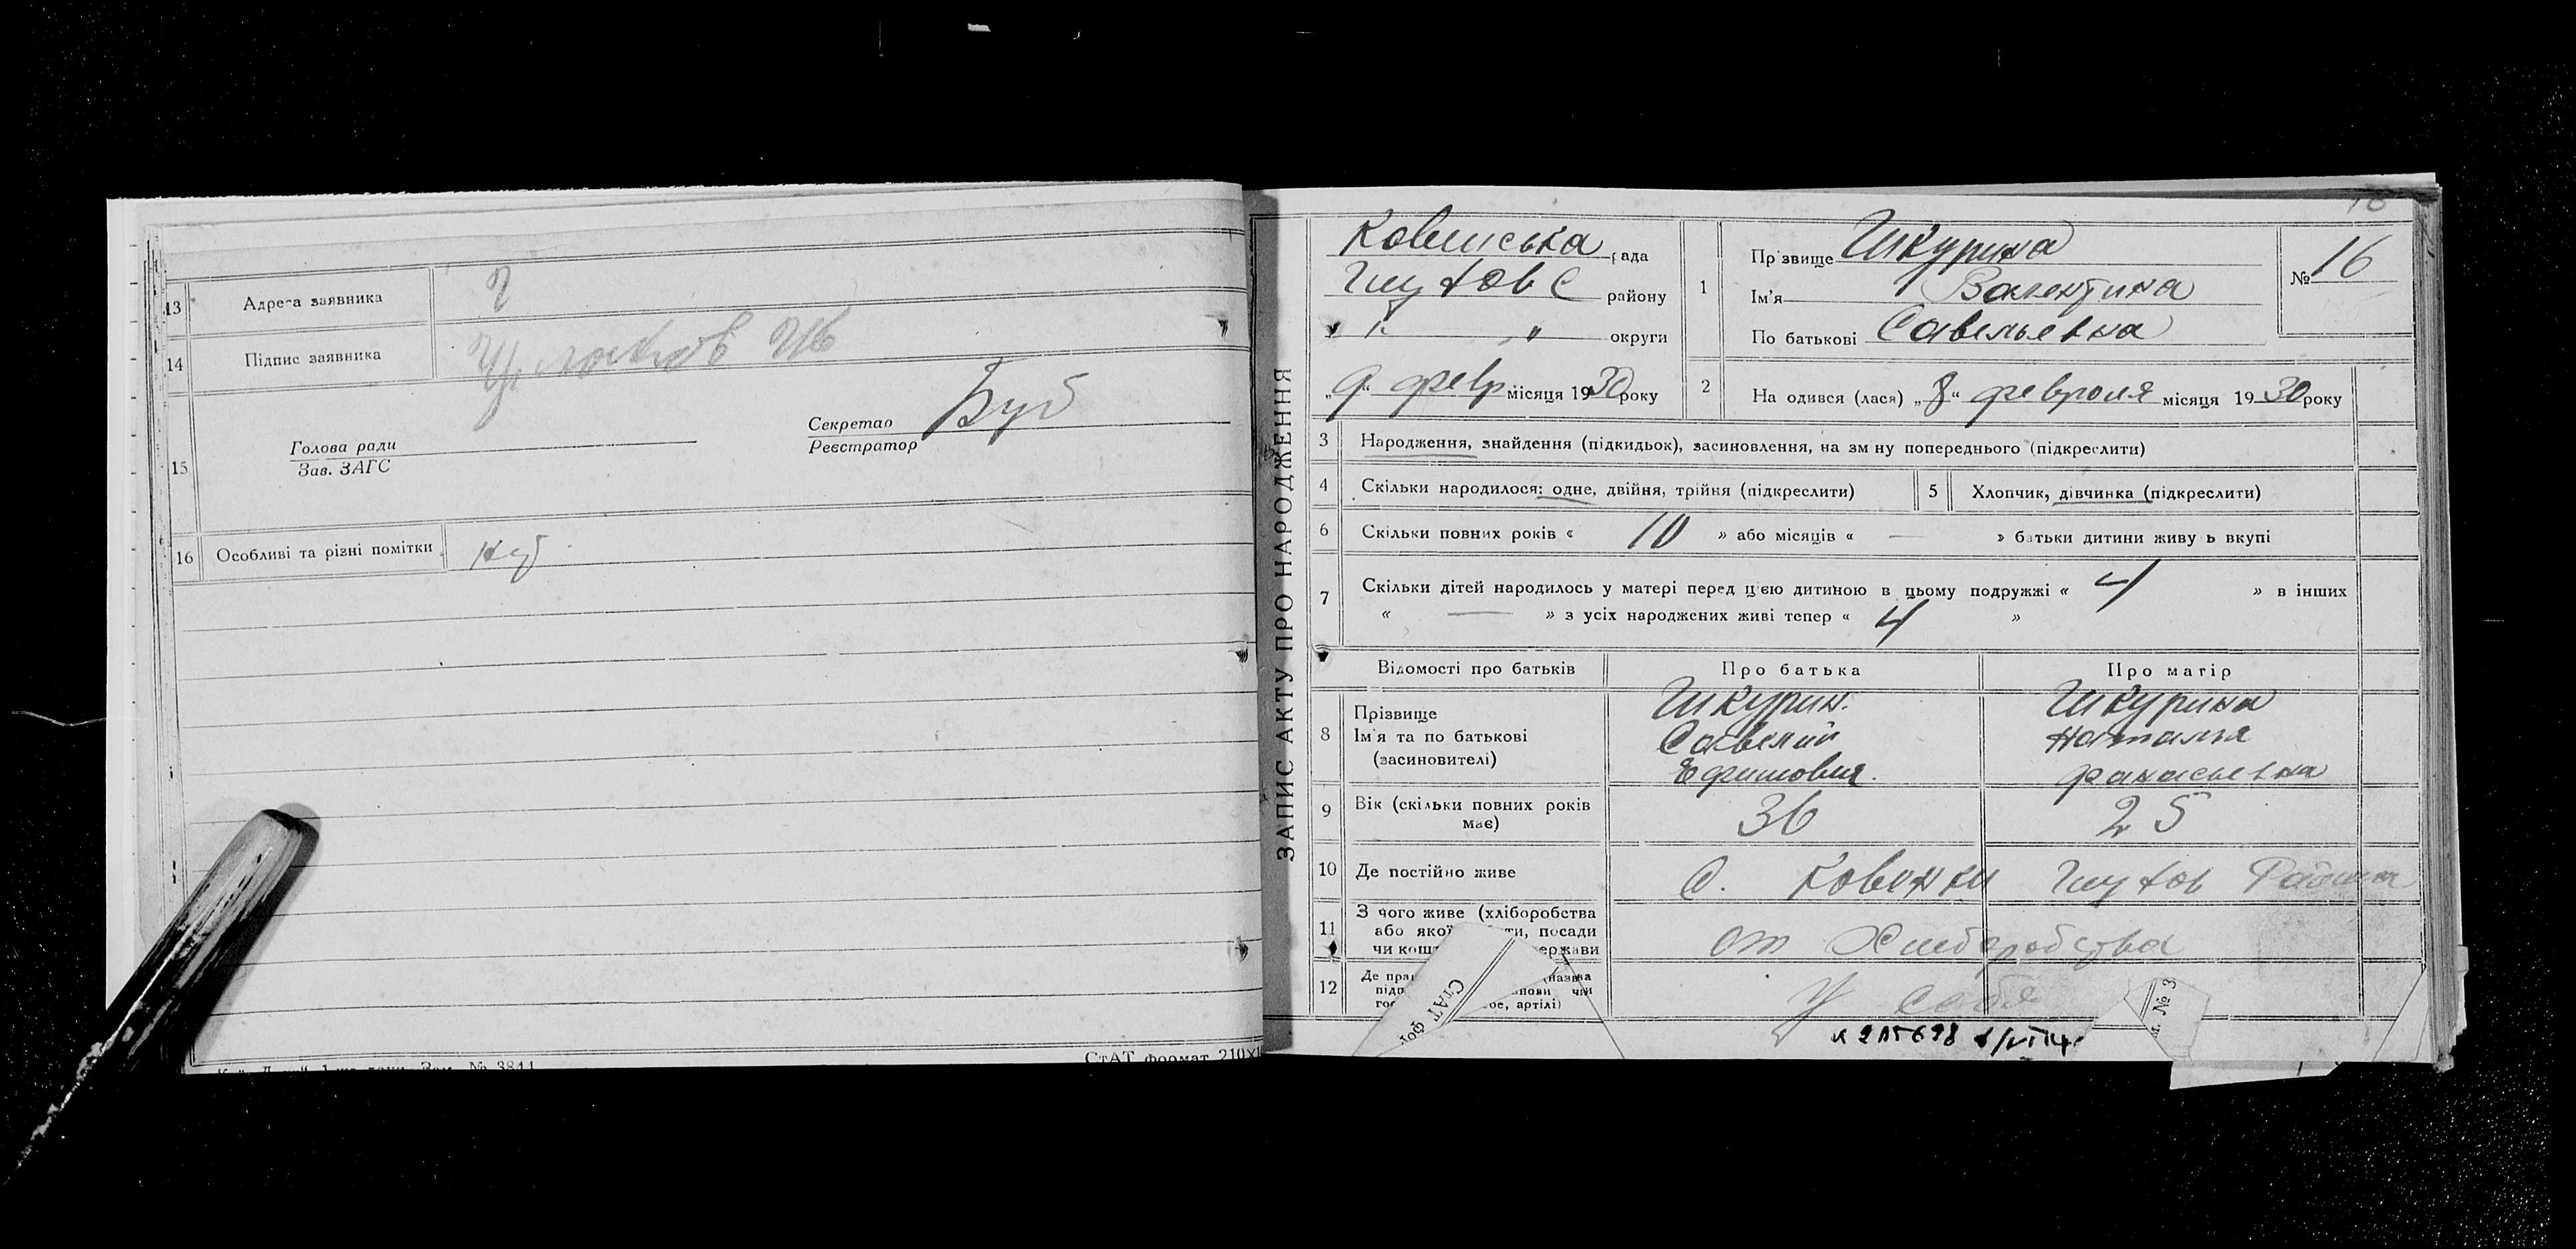 13 Адреса заявника
14 Підпис заявника
15 Голова ради
Зав. ЗАГС
Секретар
Реєстратор
16 Особливі та різні помітки
СтАТ формат 210×1
ЗАПИС АКТУ ПРО НАРОДЖЕННЯ
рада
району
округи
„9“ февр місяця 1930 року
1 Прізвище Шкурина
Ім'я Валентина
По батькові Савельевна
№ 16
2 На одився (лася) „8“ февраля місяця 1930 року
3 Народження, знайдення (підкидьок), засиновлення, на зм ну попереднього (підкреслити)
4 Скільки народилося: одне, двійня, трійня (підкреслити)
5 Хлопчик, дівчинка (підкреслити)
6 Скільки повних років « 10 » або місяців « — » батьки дитини живу ь вкупі
7 Скільки дітей народилось у матері перед цією дитиною в цьому подружжі « 4 » в інших
« — » з усіх народжених живі тепер « 4 »
Відомості про батьків Про батька Про матір
8 Прізвище
Ім'я та по батькові
(засиновителі)
Шкурин.
Савелий
Ефимович.
Шкурина
Наталия
Фанасьевна
9 Вік (скільки повних років
має)
36 25
10 Де постійно живе
С.
11 З чого живе (хліборобства
або якої ти, посади
чи кошт ержави
от Хлеборобства
12 Де прац (назва
підп нови чи
гос ое, артілі)
У себя
СтАТ фор
м. № 3